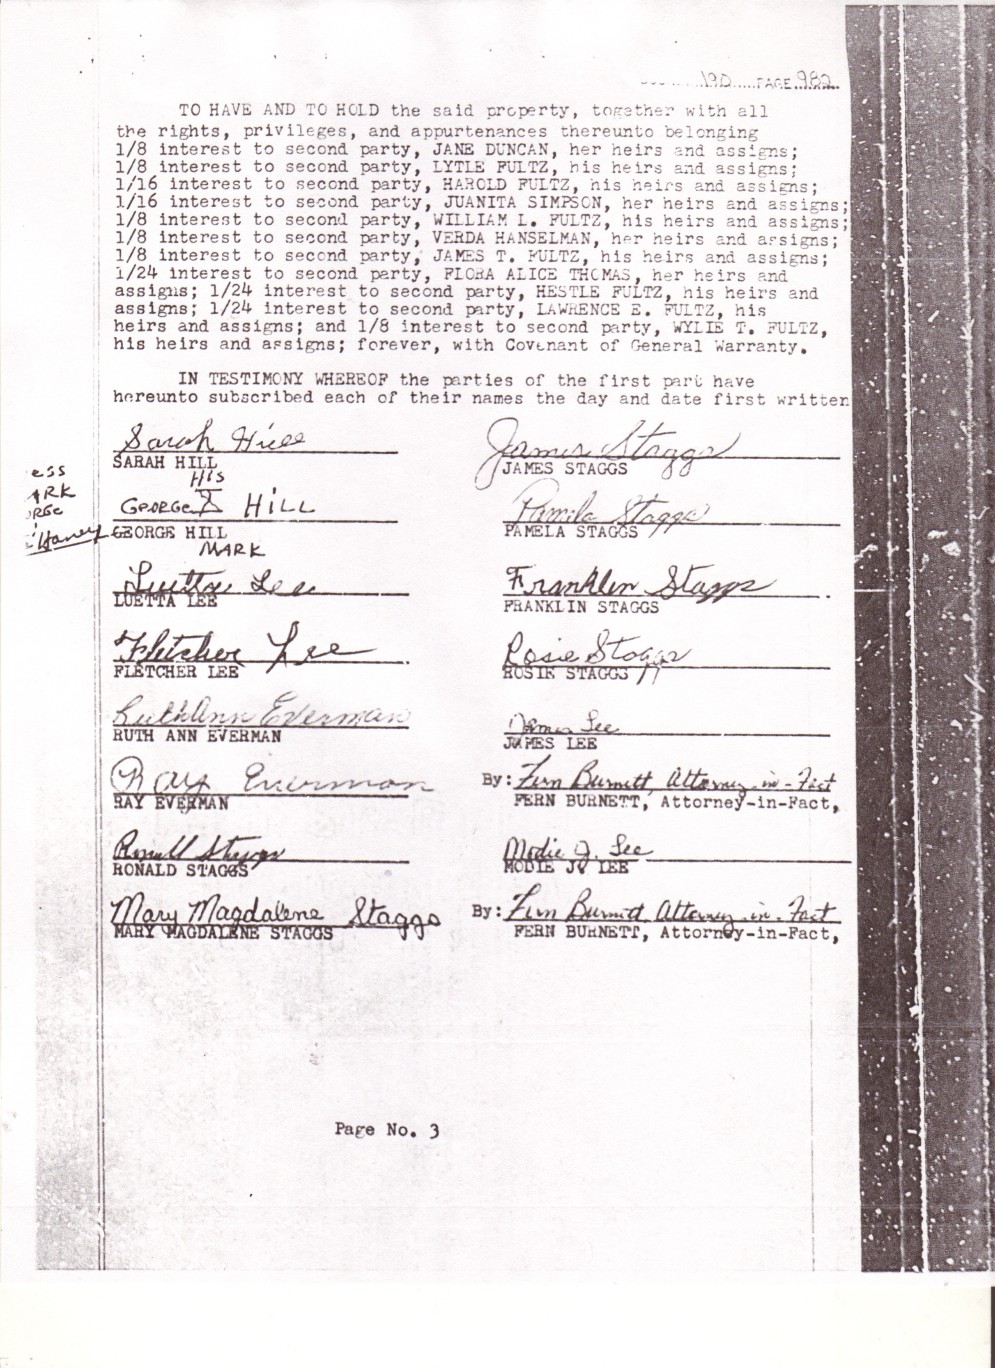 190 PAGE 982
TO HAVE AND TO HOLD the said property, together with all
the rights, privileges, and appurtenances thereunto belonging
1/8 interest to second party, JANE DUNCAN, her heirs and assigns;
1/8 interest to second party, LYTLE FULTZ, his heirs and assigns;
1/16 interest to second party, HAROLD FULTZ, his heirs and assigns;
1/16 interest to second party, JUANITA SIMPSON, her heirs and assigns;
1/8 interest to second party, WILLIAM L. FULTZ, his heirs and assigns;
1/8 interest to second party, VERDA HANSELMAN, her heirs and assigns;
1/8 interest to second party, JAMES T. FULTZ, his heirs and assigns;
1/24 interest to second party, FLORA ALICE THOMAS, her heirs and
assigns; 1/24 interest to second party, HESTLE FULTZ, his heirs and
assigns; 1/24 interest to second party, LAWRENCE E. FULTZ, his
heirs and assigns; and 1/8 interest to second party, WYLIE T. FULTZ,
his heirs and assigns; forever, with Covenant of General Warranty.
IN TESTIMONY WHEREOF the parties of the first part have
hereunto subscribed each of their names the day and date first written
Sarah Hill James Staggs
SARAH HILL JAMES STAGGS
ess
HIS
ARK
GEORGE X HILL Pamila Staggs
ORGE
Haney GEORGE HILL PAMELA STAGGS
MARK
Luetta Lee Franklin Staggs
LUETTA LEE FRANKLIN STAGGS
Fletcher Lee Rosie Staggs
FLETCHER LEE ROSIE STAGGS
RuthAnn Everman James Lee
RUTH ANN EVERMAN JAMES LEE
Ray Everman By: Fern Burnett, Attorney-in-Fact
RAY EVERMAN FERN BURNETT, Attorney-in-Fact,
Ronald Staggs Modie J. Lee
RONALD STAGGS MODIE J. LEE
Mary Magdalene Staggs By: Fern Burnett, Attorney-in-Fact
MARY MAGDALENE STAGGS FERN BURNETT, Attorney-in-Fact,
Page No. 3